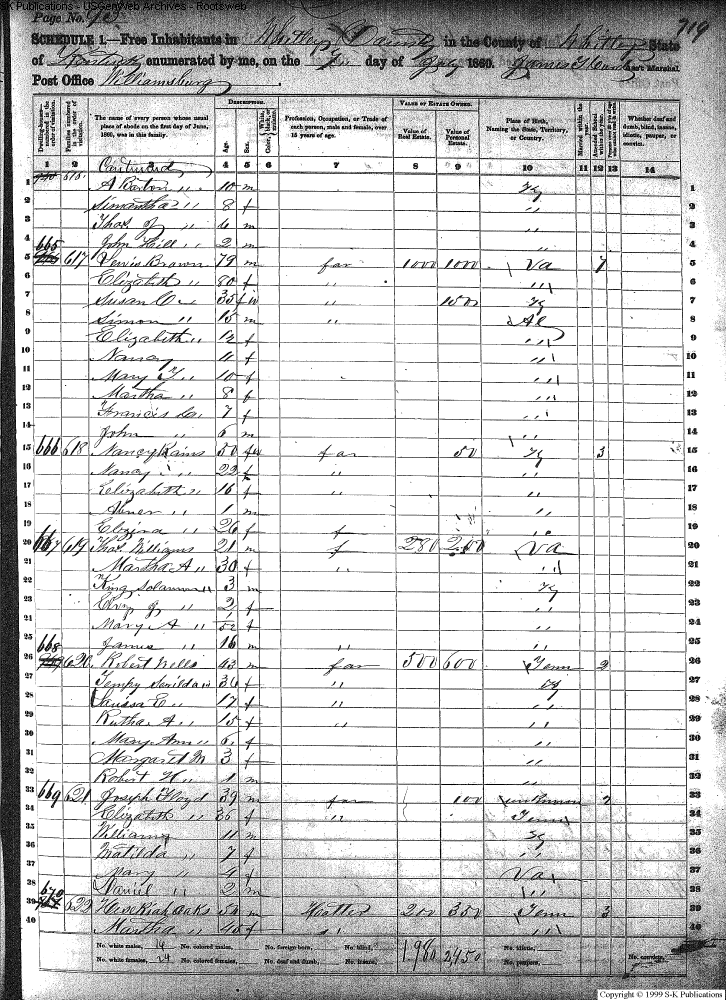 S-K Publications - USGenWeb Archives - Rootsweb
Page No. 95
719
SCHEDULE 1.—Free Inhabitants in Whitley County in the County of Whitley State
of Kentucky enumerated by me, on the day of July 1860. Ass't Marshal.
Post Office Williamsburg
Dwelling-houses—numbered in the order of visitation.
Families numbered in the order of visitation.
The name of every person whose usual place of abode on the first day of June, 1860, was in this family.
DESCRIPTION.
Age.
Sex.
Color, White, black, or mulatto.
Profession, Occupation, or Trade of each person, male and female, over 15 years of age.
VALUE OF ESTATE OWNED.
Value of Real Estate.
Value of Personal Estate.
Place of Birth, Naming the State, Territory, or Country.
Married within the year.
Attended School within the year.
Whether deaf and dumb, blind, insane, idiotic, pauper, or convict.
1 2 3 4 5 6 7 8 9 10 11 12 13 14
Continued
1 616 A Barton " 10 m Ky 1
2 Simantha " 8 f " 2
3 Thos J " 6 m " 3
4 John Hill " 2 m " 4
5 665 617 Lewis Brown 79 m far 1000 1000 Va 1 5
6 Elizabeth " 80 f " " 6
7 Susan C " 35 f w " 150 Ky 7
8 Simon " 15 m " Al 8
9 Elizabeth " 12 f " 9
10 Nancy 11 f " 10
11 Mary F " 10 f " 11
12 Martha " 8 f " 12
13 Francis 7 f " 13
14 John " 6 m " 14
15 666 618 Nancy Rains 50 f w far 50 Ky 3 15
16 Nancy " 22 f " " 16
17 Elizabeth " 16 f " " 17
18 Abner " 1 m " 18
19 " 26 f f " 19
20 667 619 Thos Williams 21 m f 280 200 Va 20
21 Martha A " 30 f " " 21
22 King Solamon " 3 m Ky 22
23 J " 2 f " 23
24 Mary A " f " 24
25 James " 16 m " " 25
26 668 620 Robert Wells 43 m far 500 600 Tenn 2 26
27 Tempy Serilda " 36 f " Ky 27
28 E " 17 f " " 28
29 Rutha A " 15 f " " 29
30 Mary Ann " 6 f " 30
31 Margaret M 3 f " 31
32 Robert H " 1 m " 32
33 669 621 Joseph Floyd 39 m far 100 unknown 2 33
34 Elizabeth " 36 f " Tenn 34
35 William 11 m Ky 35
36 Matilda " 7 f " 36
37 Mary " 4 f Va 37
38 Daniel " 2 m " 38
39 670 622 Hesekiah Oaks 54 m Hatter 200 350 Tenn 3 39
40 Martha " 45 f " " 40
No. white males, 16 No. colored males, No. foreign born, No. blind, 1980 2450 No. idiotic, No. convicts,
No. white females, 24 No. colored females, No. deaf and dumb, No. insane, No. paupers,
Copyright © 1999 S-K Publications